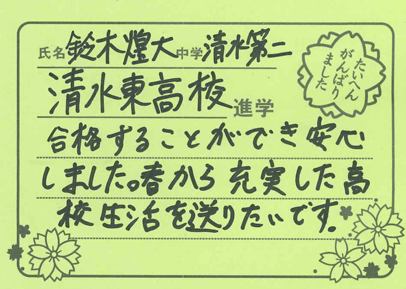 氏名 鈴木煌大 中学 清水第二
清水東高校 進学
合格することができ安心
しました。春から充実した高
校生活を送りたいです。
たいへん
がんばり
ました